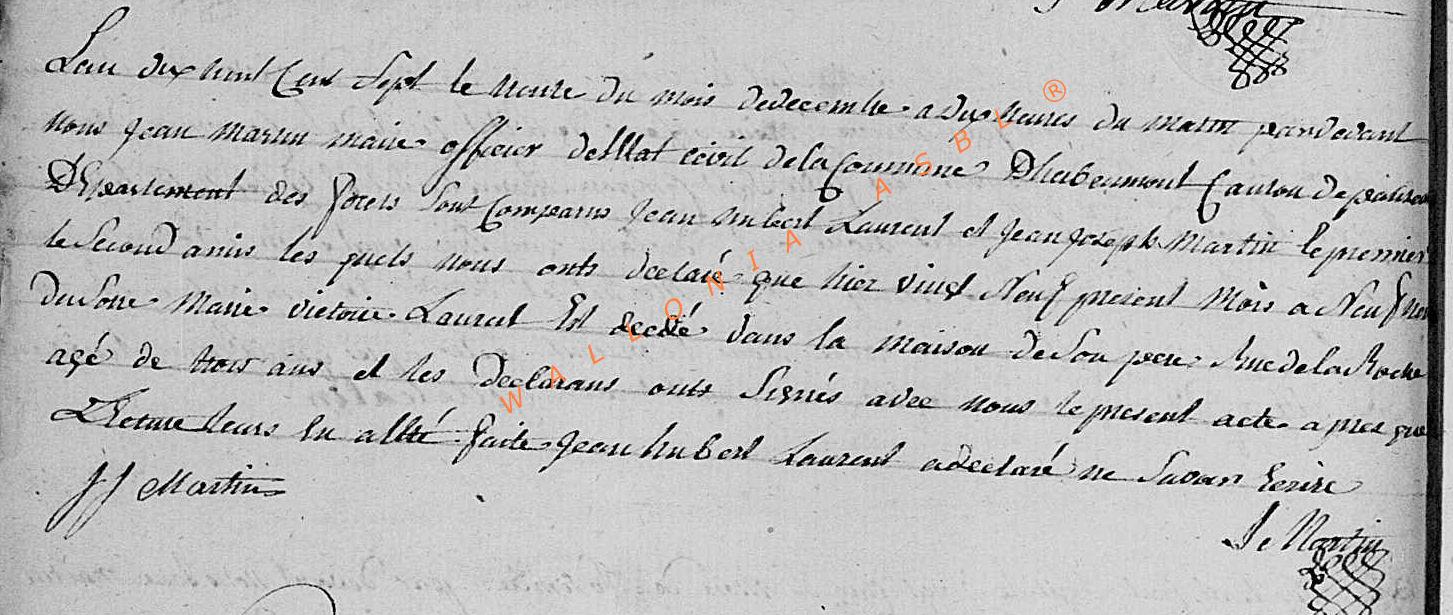 Martin
Lan dix huit Cent Sept le trente du mois dedecembre a dix heures du matin pardevant
nous Jean Martin maire officier delEtat civil dela Commune Dherbeumont Canton depaliseul
Département des forets Sont Comparus Jean hubert Laurent et Jean Joseph Martin le premier
le Second amis les quels nous onts declaré que hier vingt Neuf present Mois a Neuf
du Soire Marie victoire Laurent Est decedé dans la maison deSon pere Rue de la Roche
agé de trois ans et les declarans onts Signés avec nous le present acte apres que
Lecture leurs En a été faite Jean hubert Laurent a declaré ne Savoir Ecrire
JJ Martin
J Martin
WALLONIA ASBL ®